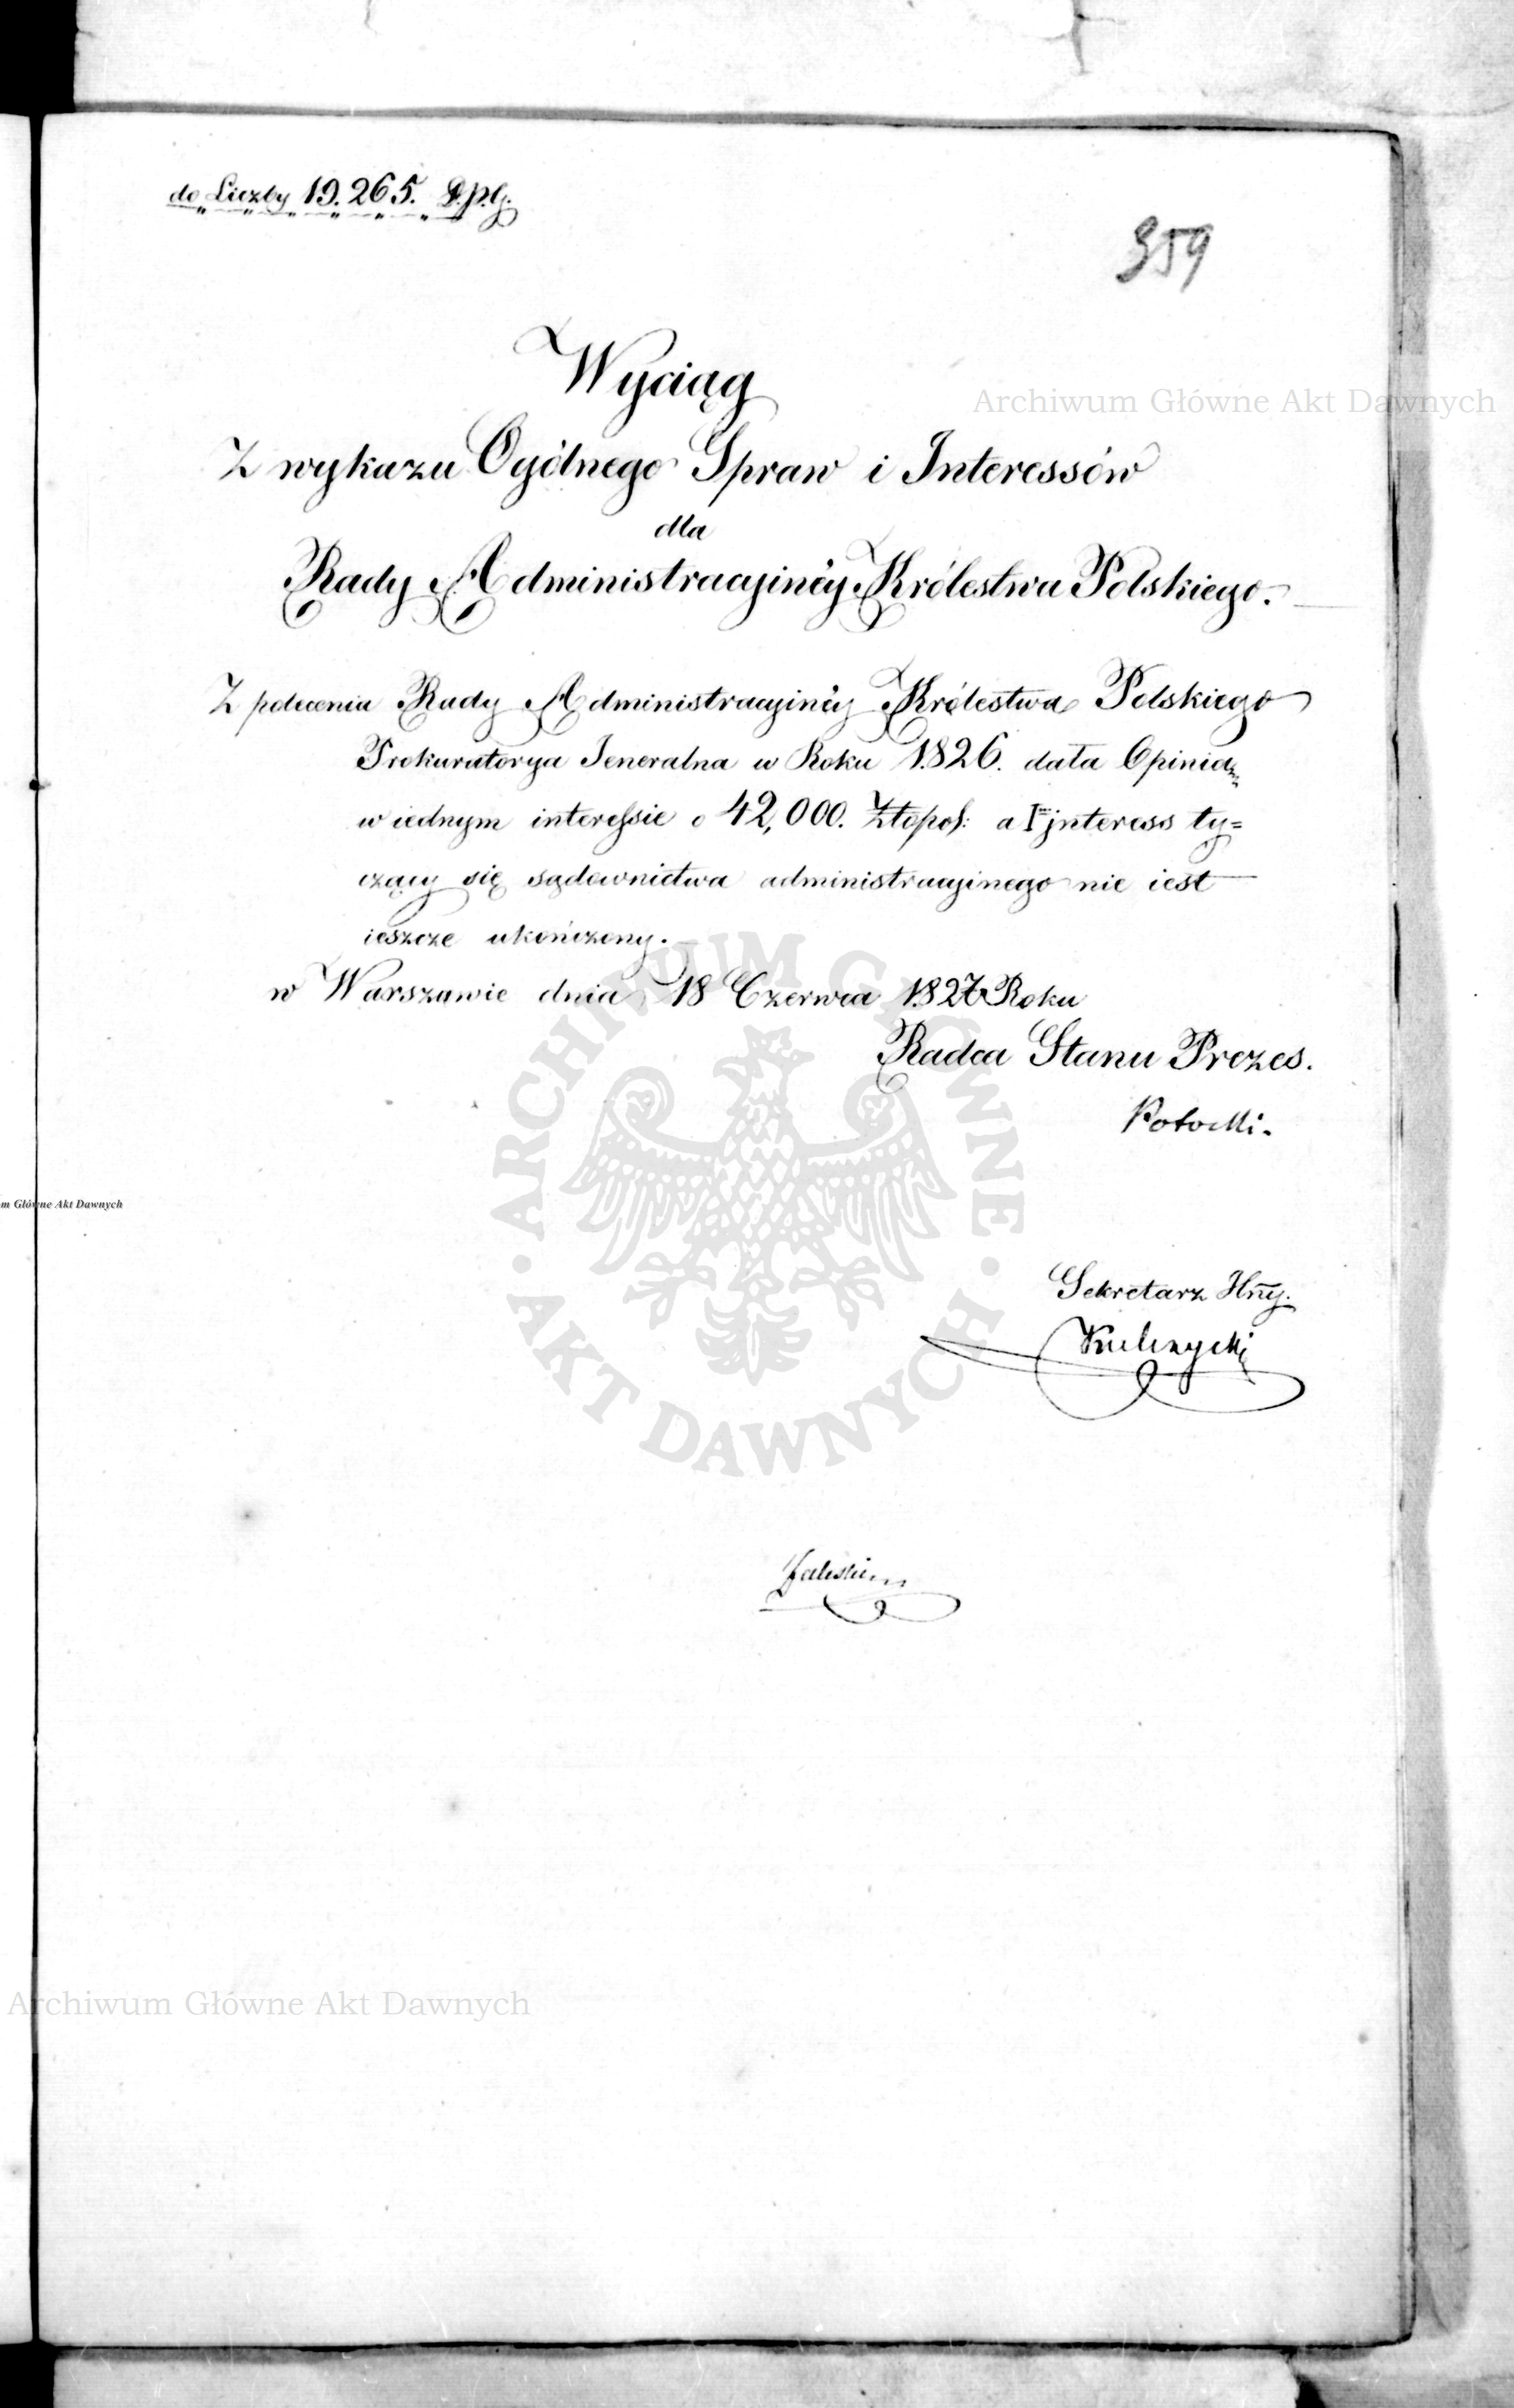 de Liczby 19.265. D.p.G.
359
Wyciąg
Z wykazu Ogólnego Spraw i Interessów
dla
Rady Administracyinéy Królestwa Polskiego.
Z polecenia Rady Administracyinéy Królestwa Polskiego
Prokuratorya Jeneralna w Roku 1826. dała Opinią
w iednym interessie o 42,000. Złtopol: a 1en interess ty=
czący się sądownictwa administracyinego nie iest
ieszcze ukończony.
w Warszawie dnia 18 Czerwca 1827 Roku
Radca Stanu Prezes.
Potocki.
Sekretarz Jlny.
Kulczycki
Zaleski
Archiwum Główne Akt Dawnych
m Główne Akt Dawnych
ARCHIWUM GŁÓWNE · AKT DAWNYCH ·
Archiwum Główne Akt Dawnych